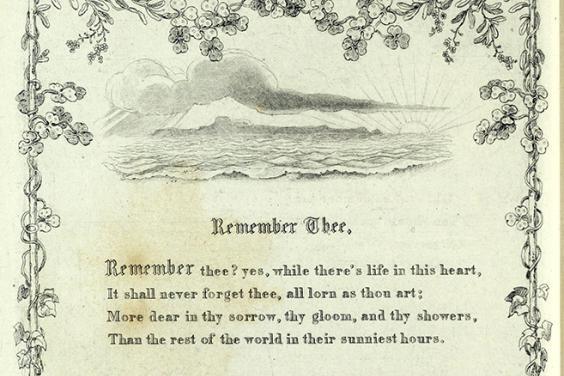 Remember Thee,
Remember thee? yes, while there's life in this heart,
It shall never forget thee, all lorn as thou art;
More dear in thy sorrow, thy gloom, and thy showers,
Than the rest of the world in their sunniest hours.